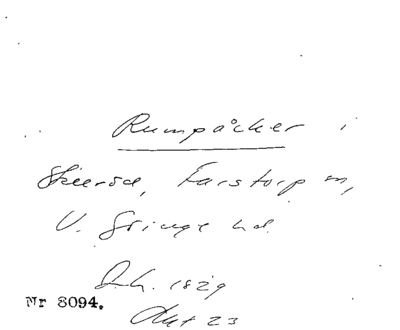 Rumpåcker i
Skeröd, Farstorp m,
V. Göinge hd.
D.h. 1829
Akt 23
Nr 8094.